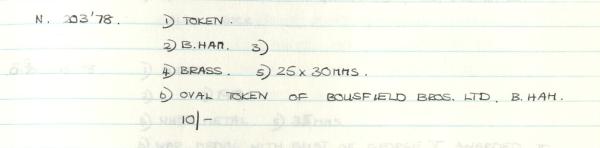 N. 203'78. 1) TOKEN.
2) B.HAM. 3)
4) BRASS. 5) 25 x 30mms.
6) OVAL TOKEN OF BOUSFIELD BROS. LTD. B.HAM.
10/-